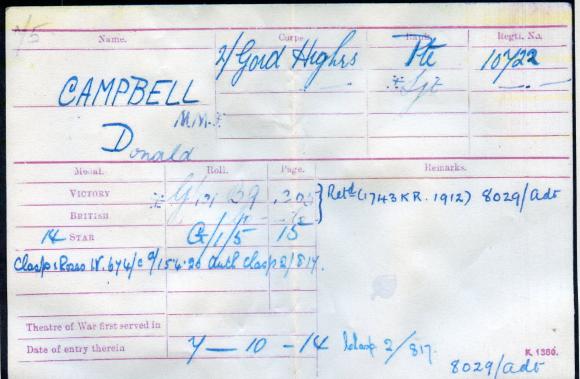 Name. Corps. Rank. Regtl. No.
CAMPBELL 2/Gord Highrs Pte 10722
M.M. Sgt
Donald
Medal. Roll. Page. Remarks.
VICTORY Retd (1743 KR. 1912) 8029/Adt
BRITISH
14 STAR G/1/5 15
Clasp & Roses 2/817.
Theatre of War first served in
Date of entry therein 7 — 10 — 14 Clasp 2/817.
K. 1380.
8029/Adt